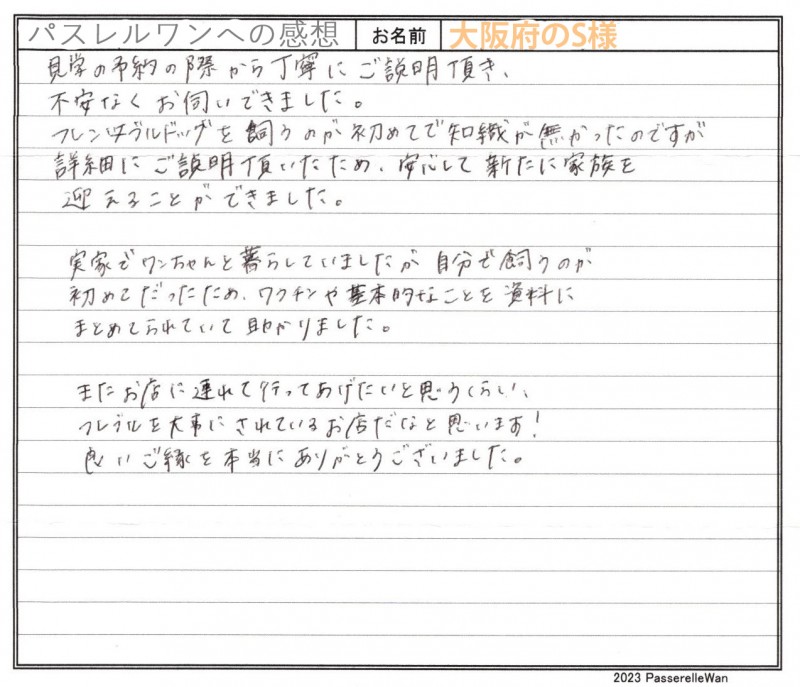 パスレルワンへの感想 お名前 大阪府のS様
見学の予約の際から丁寧にご説明頂き、
不安なくお伺いできました。
フレンチブルドッグを飼うのが初めてで知識が無かったのですが
詳細にご説明頂いたため、安心して新たに家族を
迎えることができました。
実家でワンちゃんと暮らしていましたが自分で飼うのが
初めてだったため、ワクチンや基本的なことを資料に
まとめてられていて助かりました。
またお店に連れて行ってあげたいと思うくらい、
フレブルを大事にされているお店だなと思います!
良いご縁を本当にありがとうございました。
2023 PasserelleWan